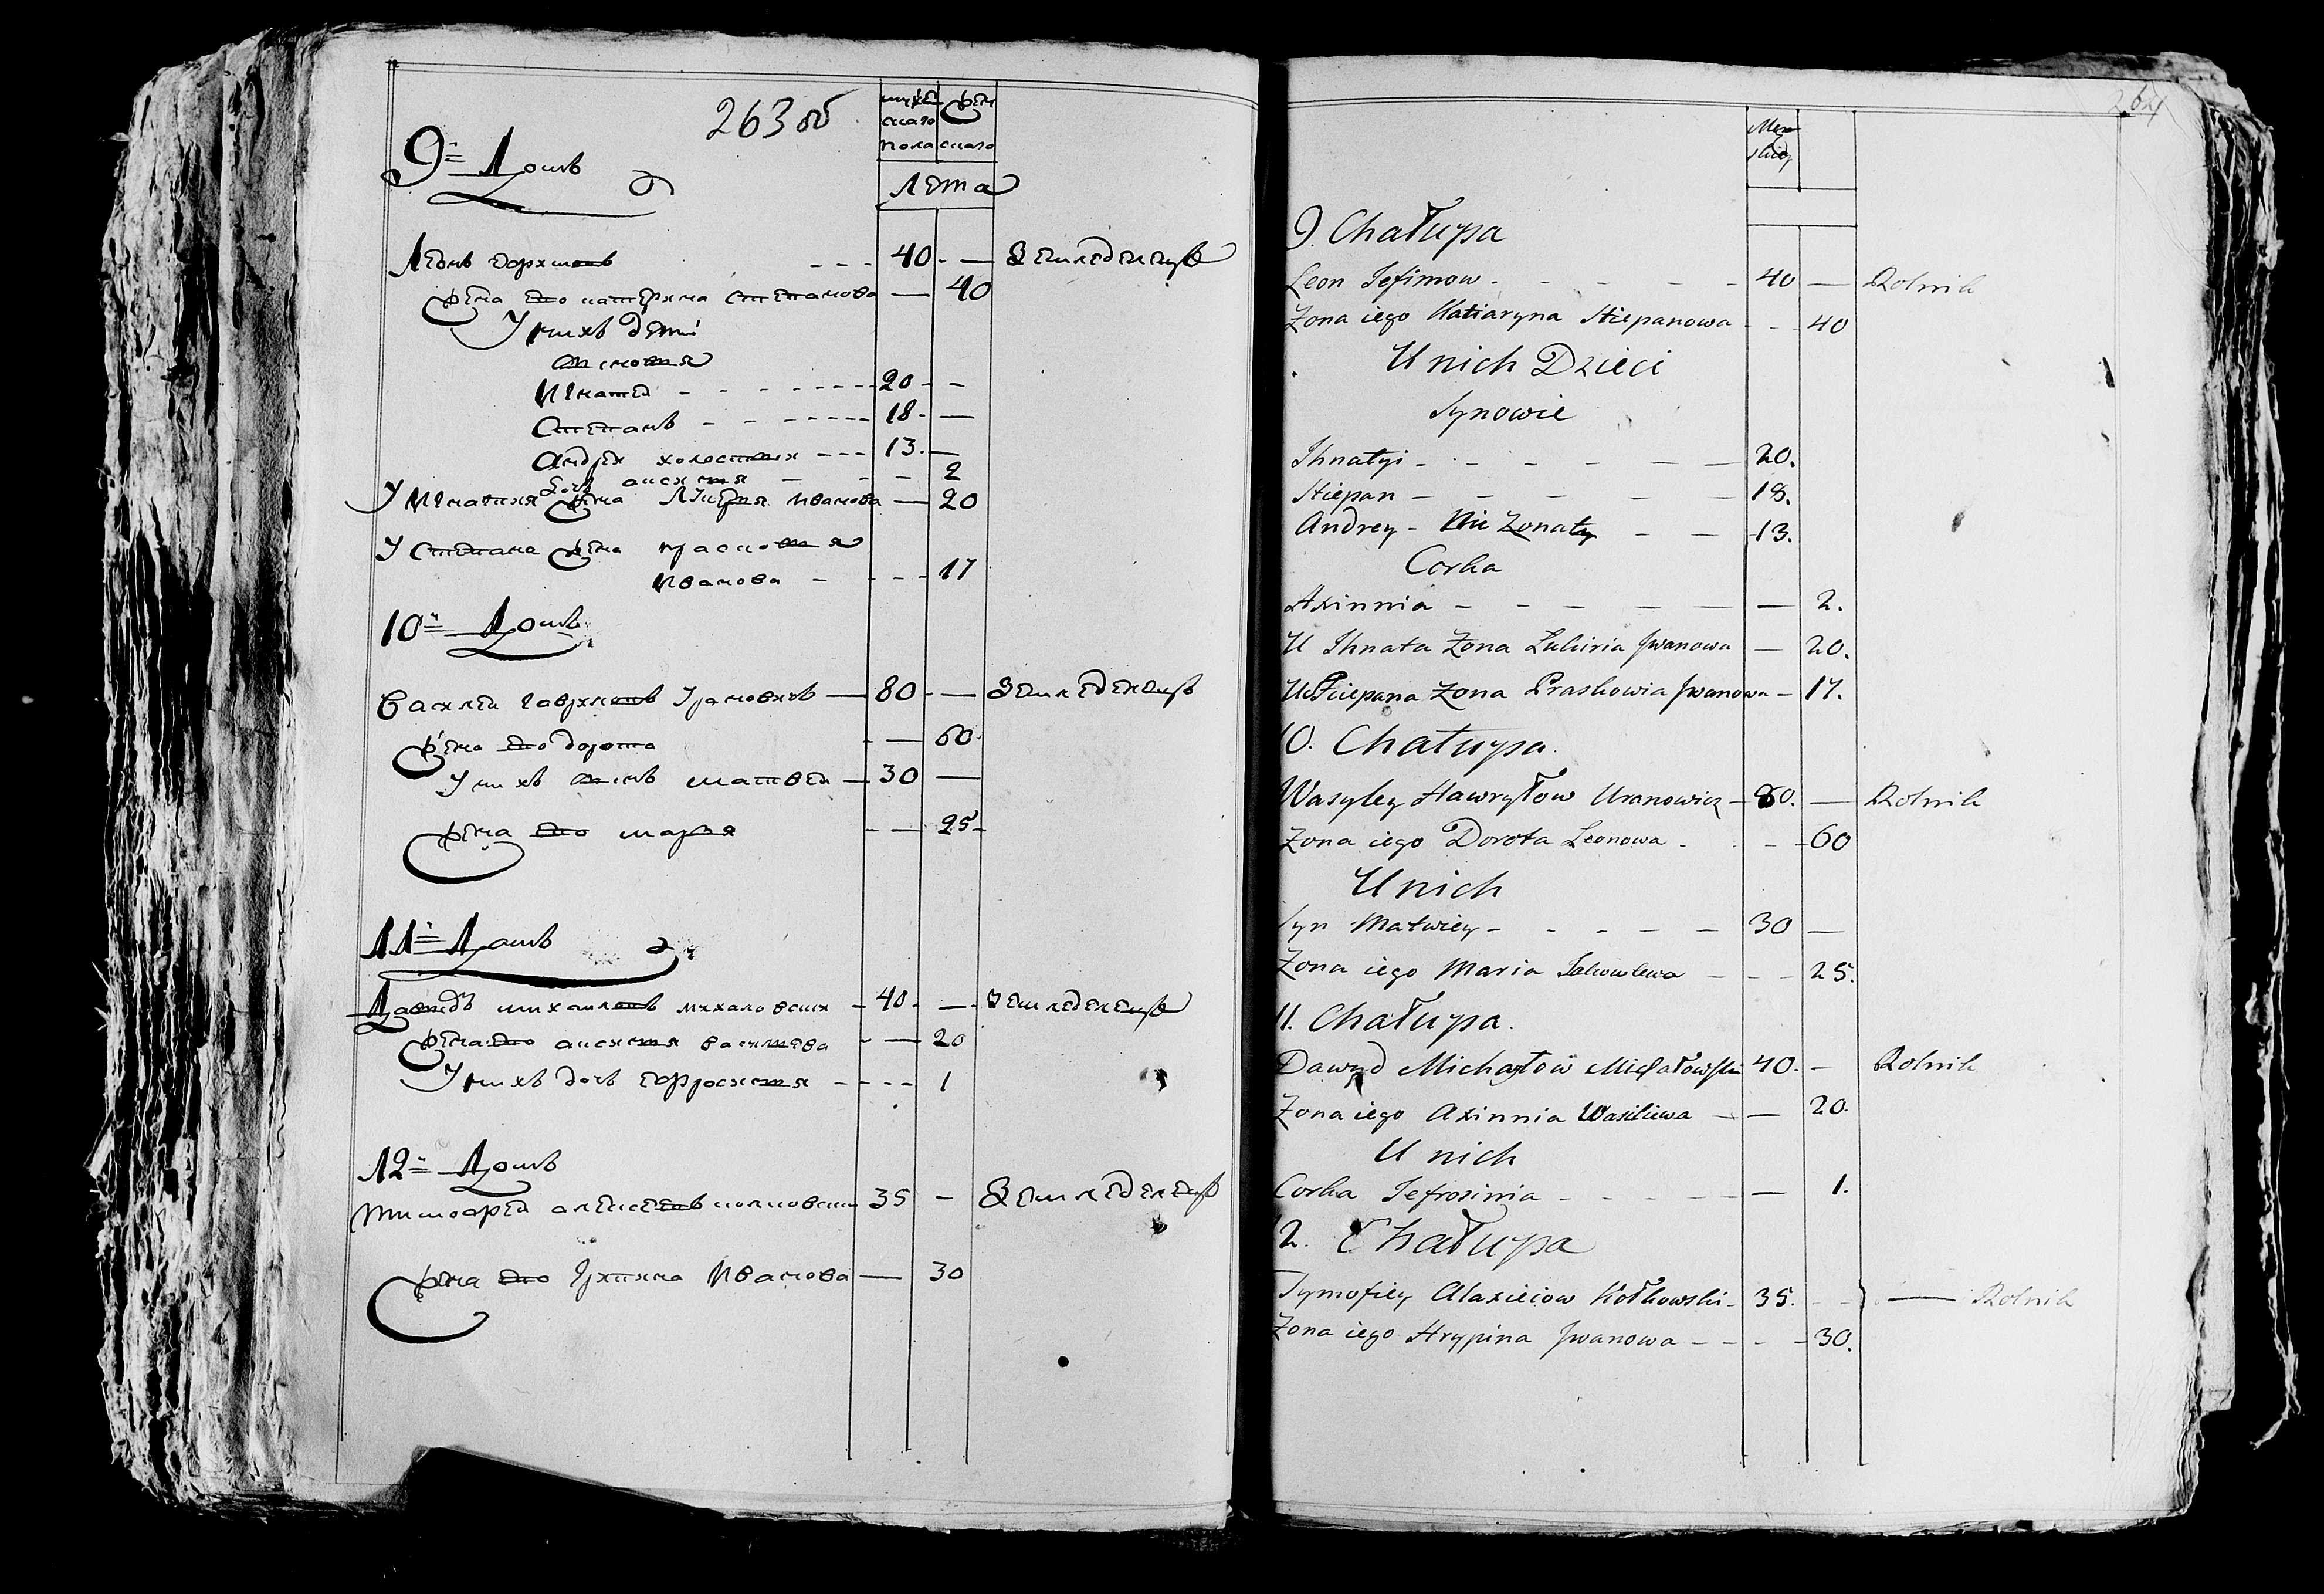 263 об
мужескаго пола
женскаго
лета
9й Домъ
Леонъ Ефимовъ - - - 40 - — Земледелецъ
жена его катерина степанова — 40
У нихъ дети
Сыновья
Игнатей - - - - - 20 - -
Степанъ - - - - - 18 - —
Андрей холостый - - - 13. —
Дочь аксиния - - - 2
У Игнатия жена Лукерия иванова — 20
У Степана жена прасковия
Иванова - - - - 17
10й Домъ
Василей гавриловъ Урановичъ — 80 - — Земледелецъ
жена его дорота - — 60
У нихъ сынъ матвей — 30 —
жена его мария - — 25 -
11й Домъ
Давидъ михаиловъ михаловский - 40 - — Земледелецъ
жена его аксиния василева - — 20
У нихъ дочь ефросиния - - - - 1
12й Домъ
Тимофей алексеевъ колковский 35 - Земледелецъ
жена его Грипина Иванова — 30
264
Męzskiey
9. Chałupa
Leon Jefimow - - - - - 40 — Rolnik
Zona iego Katiaryna Stiepanowa - - 40
U nich Dzieci
Synowie
Ihnatyi - - - - - — 20.
Stiepan - - - - - — 18.
Andrey - Nie Zonaty - - 13.
Corka
Axinnia - - - - — — 2.
U Ihnata Zona Lukiria Jwanowa — 20.
U Stiepana Zona Praskowia Jwanowa — 17.
10. Chałupa.
Wasyley Hawryłow Uranowicz — 80. — Rolnik
Zona iego Dorota Leonowa - - - 60
U nich
Syn Matwiey - - - - — 30 —
Zona iego Maria Jakowlewa — - - 25.
11. Chałupa.
Dawyd Michayłow Michałowski 40. - Rolnik
Zona iego Axinnia Wasiliewa — — 20.
U nich
Corka Jefrosinia - - - - — 1.
12. Chałupa
Tymofiey Alaxieiow Kołkowski - 35. - - } — Rolnik
Zona iego Hrypina Jwanowa — - - - 30.